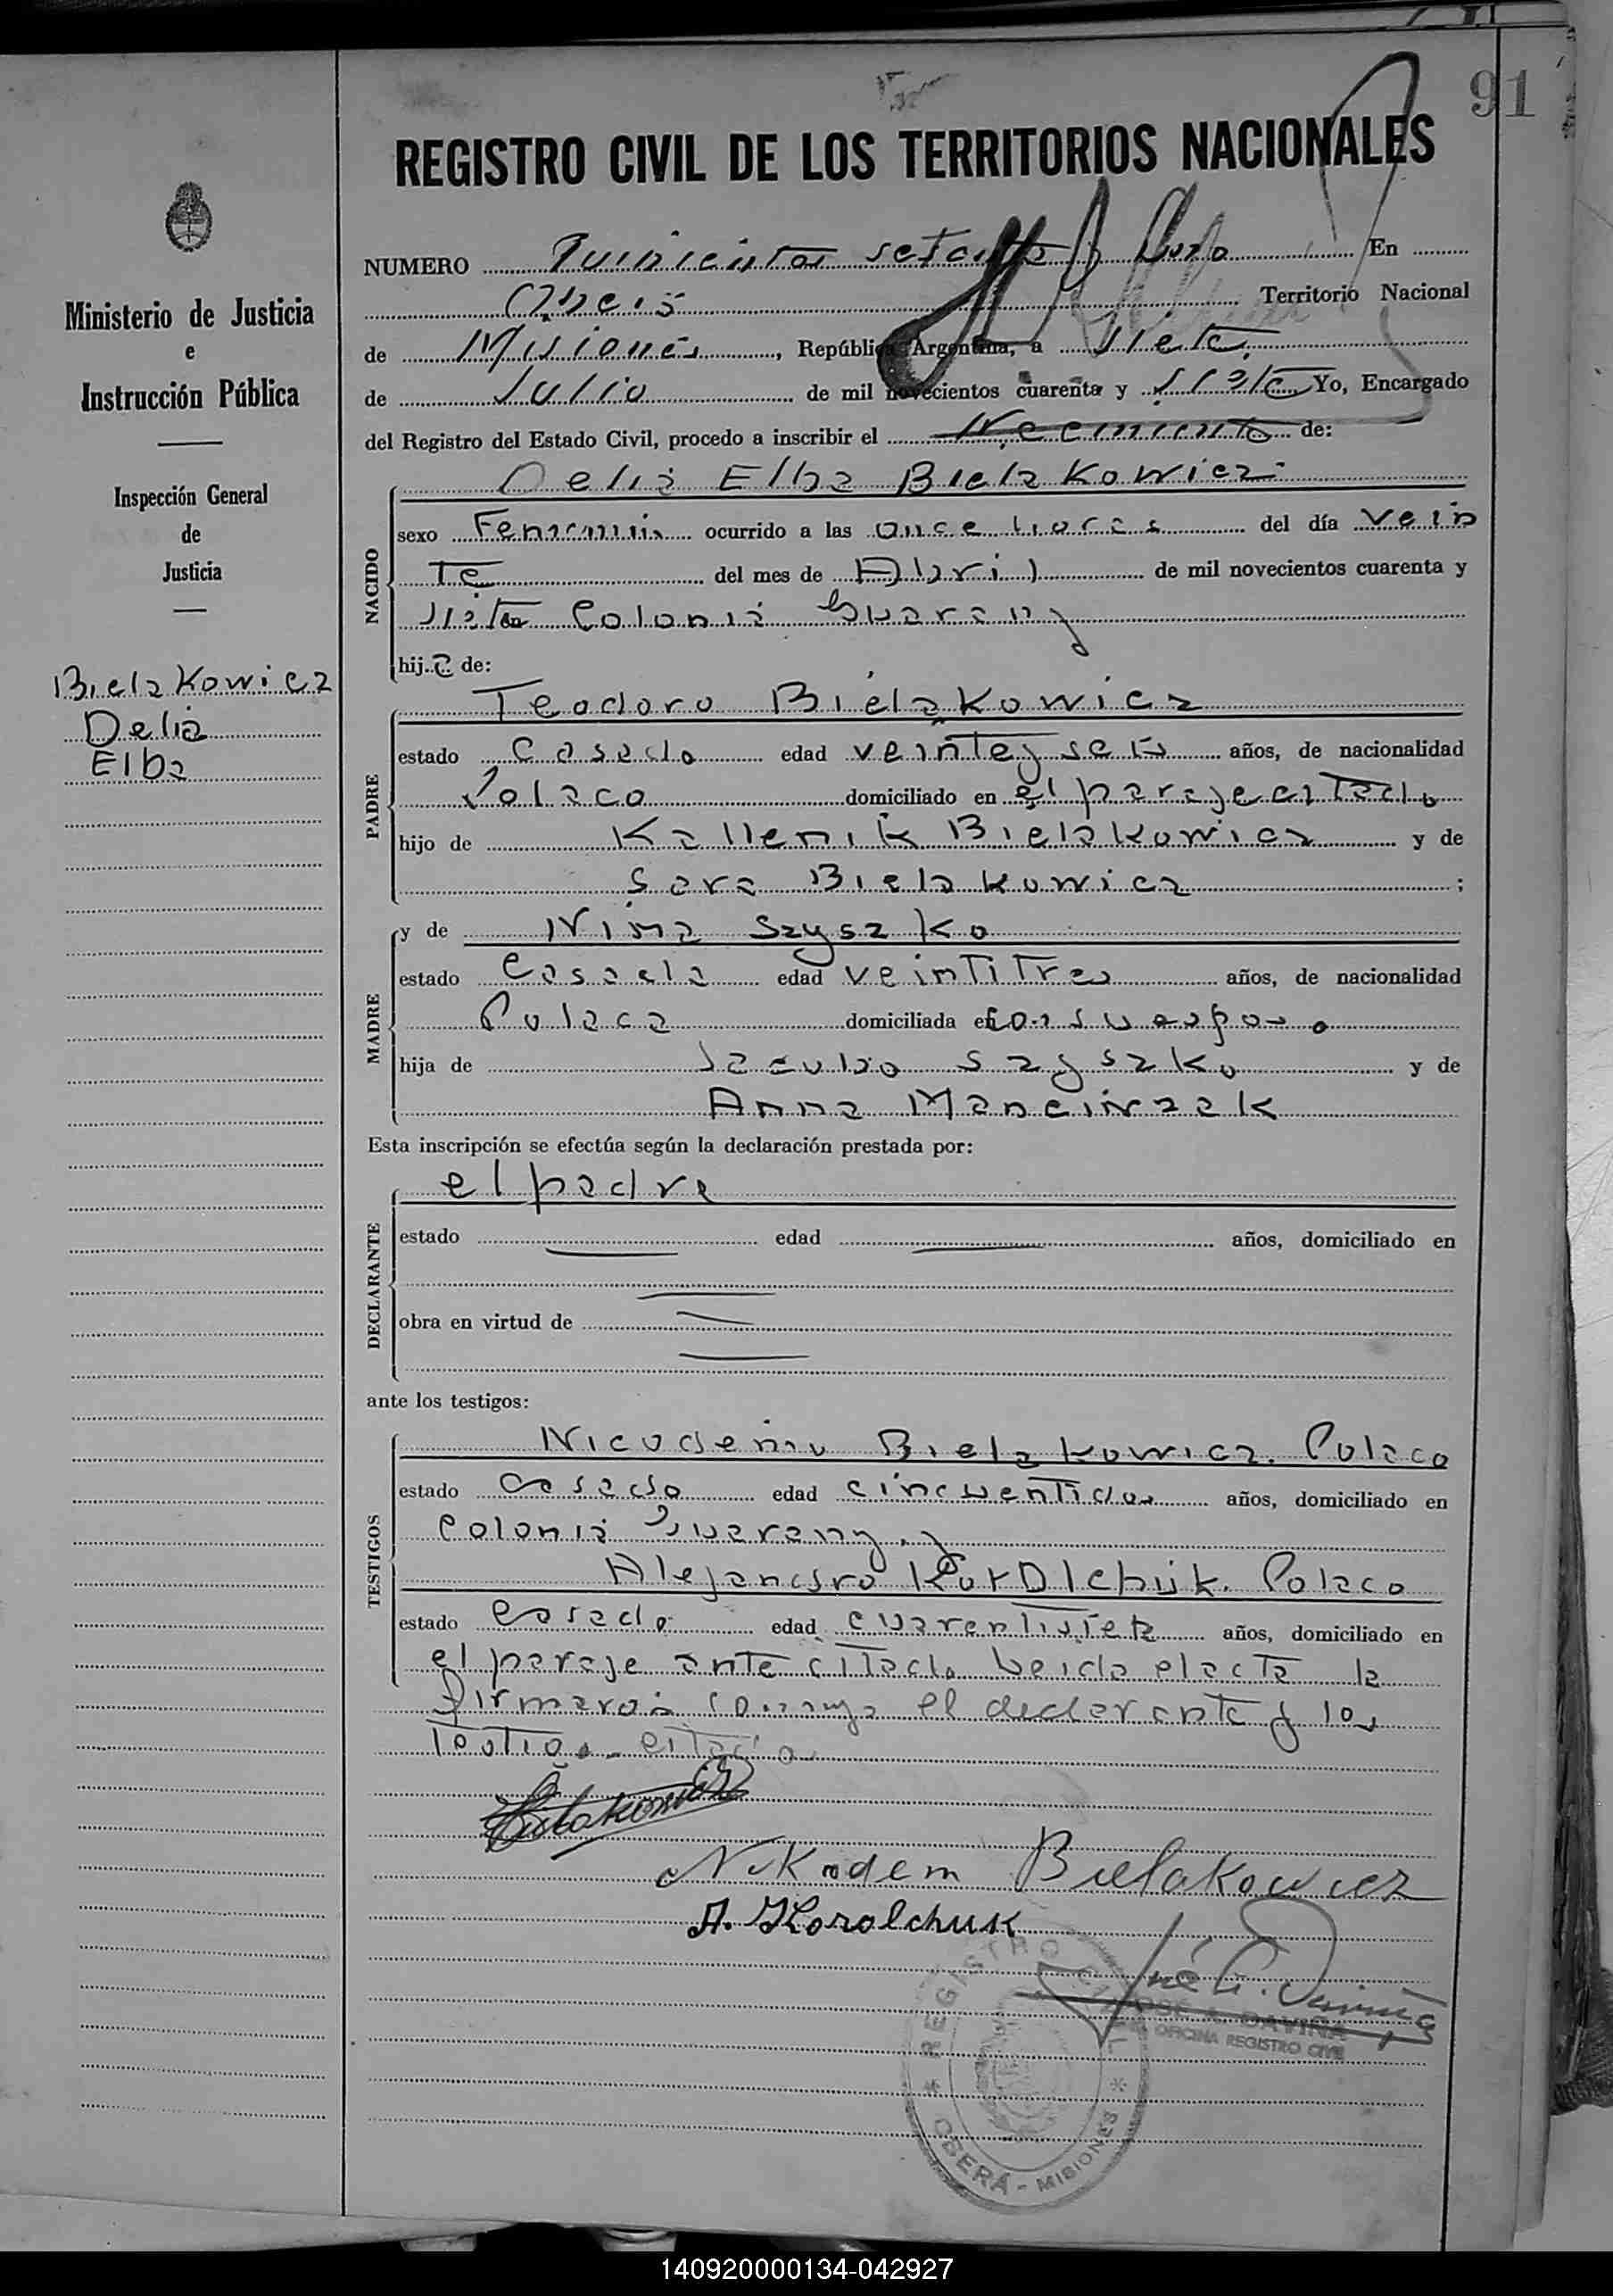 91
REGISTRO CIVIL DE LOS TERRITORIOS NACIONALES
NUMERO Quinientos setenta y En
Oberá Territorio Nacional
de Misiones, República Argentina, a siete
de Julio de mil novecientos cuarenta y siete Yo, Encargado
del Registro del Estado Civil, procedo a inscribir el Nacimiento de:
Ministerio de Justicia
e
Instrucción Pública
Inspección General
de
Justicia
Bielakowicz
Delia
Elba
NACIDO
Delia Elba Bielakowicz
sexo Femenino ocurrido a las once horas del día vein
te del mes de Abril de mil novecientos cuarenta y
siete Colonia Guarany
hija de:
PADRE
Teodoro Bielakowicz
estado Casado edad veinteyseis años, de nacionalidad
Polaco domiciliado en el paraje citado
hijo de Kallenik Bielakowicz y de
Sara Bielakowicz ;
MADRE
y de Nina Szyszko
estado Casada edad veintitres años, de nacionalidad
Polaca domiciliada en con su esposo
hija de Jacubo Szyszko y de
Anna
Esta inscripción se efectúa según la declaración prestada por:
DECLARANTE
el padre
estado edad años, domiciliado en
obra en virtud de
ante los testigos:
TESTIGOS
Nicodemo Bielakowicz. Polaco
estado casado edad cincuentidos años, domiciliado en
Colonia Guarany. y
Alejandro Polaco
estado casado edad cuarentisiete años, domiciliado en
el paraje ante citado leida el acta la
firmaron conmigo el declarante y los
testigos citados
Bielakowicz
Nikodem Bielakowicz
A. Korolchuk
JOSÉ A. DAVIÑA
OFICINA REGISTRO CIVIL
REGISTRO CIVIL
OBERÁ - MISIONES
140920000134-042927